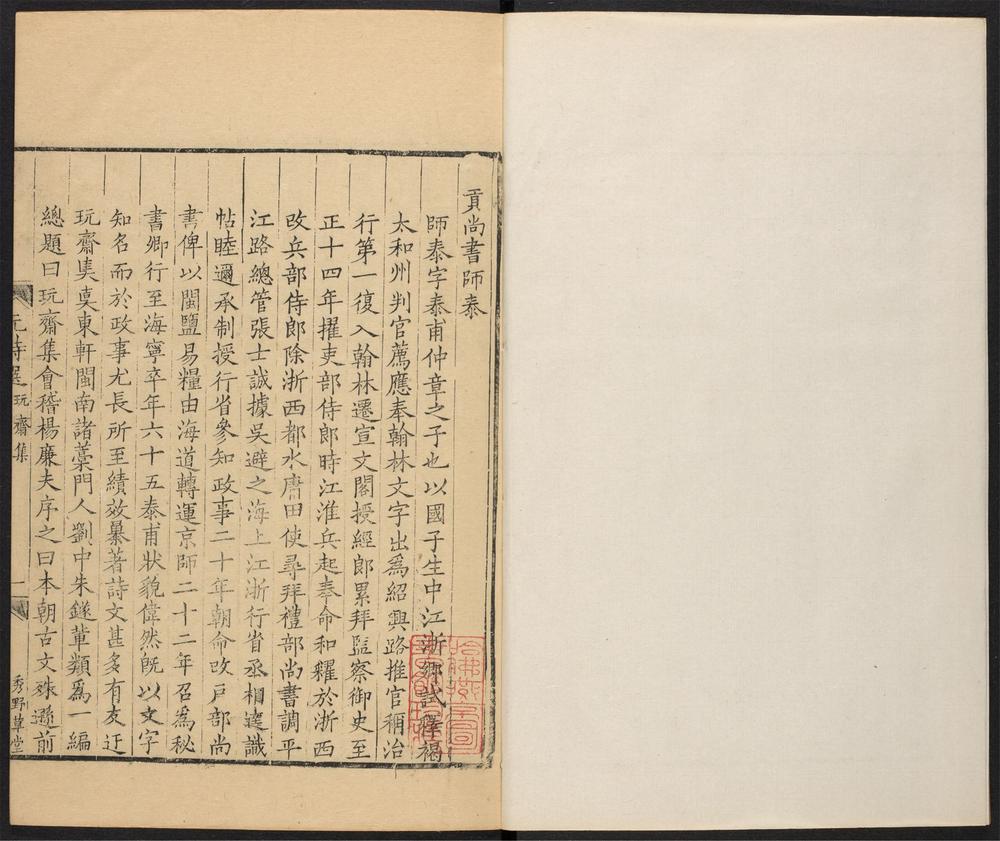 貢尚書師泰
師泰字泰甫仲章之子也以國子生中江浙鄉試釋褐
太和州判官薦應奉翰林文字出爲紹興路推官稱治
行第一復入翰林遷宣文閣授經郎累拜監察御史至
正十四年擢吏部侍郎時江淮兵起奉命和糴於浙西
改兵部侍郎除浙西都水庸田使尋拜禮部尚書調平
江路總管張士誠據吳避之海上江浙行省丞相達識
帖睦邇承制授行省參知政事二十年朝命改戶部尚
書俾以閩鹽易糧由海道轉運京師二十二年召爲秘
書卿行至海寧卒年六十五泰甫狀貌偉然旣以文字
知名而於政事尤長所至績效暴著詩文甚多有友迂
玩齋集𢈪東軒閩南諸藁門人劉中朱鐩輩類爲一編
總題曰玩齋集會稽楊廉夫序之曰本朝古文殊遜前
元詩選 玩齋集 一 秀野草堂
哈佛燕京圖書館